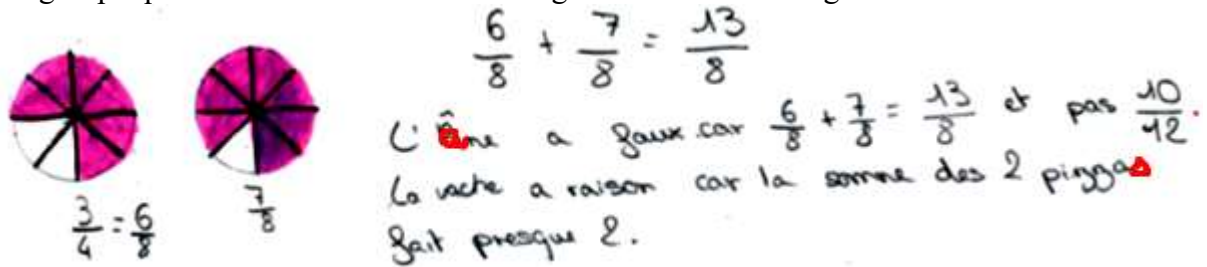 6/8 + 7/8 = 13/8
L'âne a faux car 6/8 + 7/8 = 13/8 et pas 10/12.
La vache a raison car la somme des 2 pizzas
fait presque 2.
3/4 = 6/8
7/8